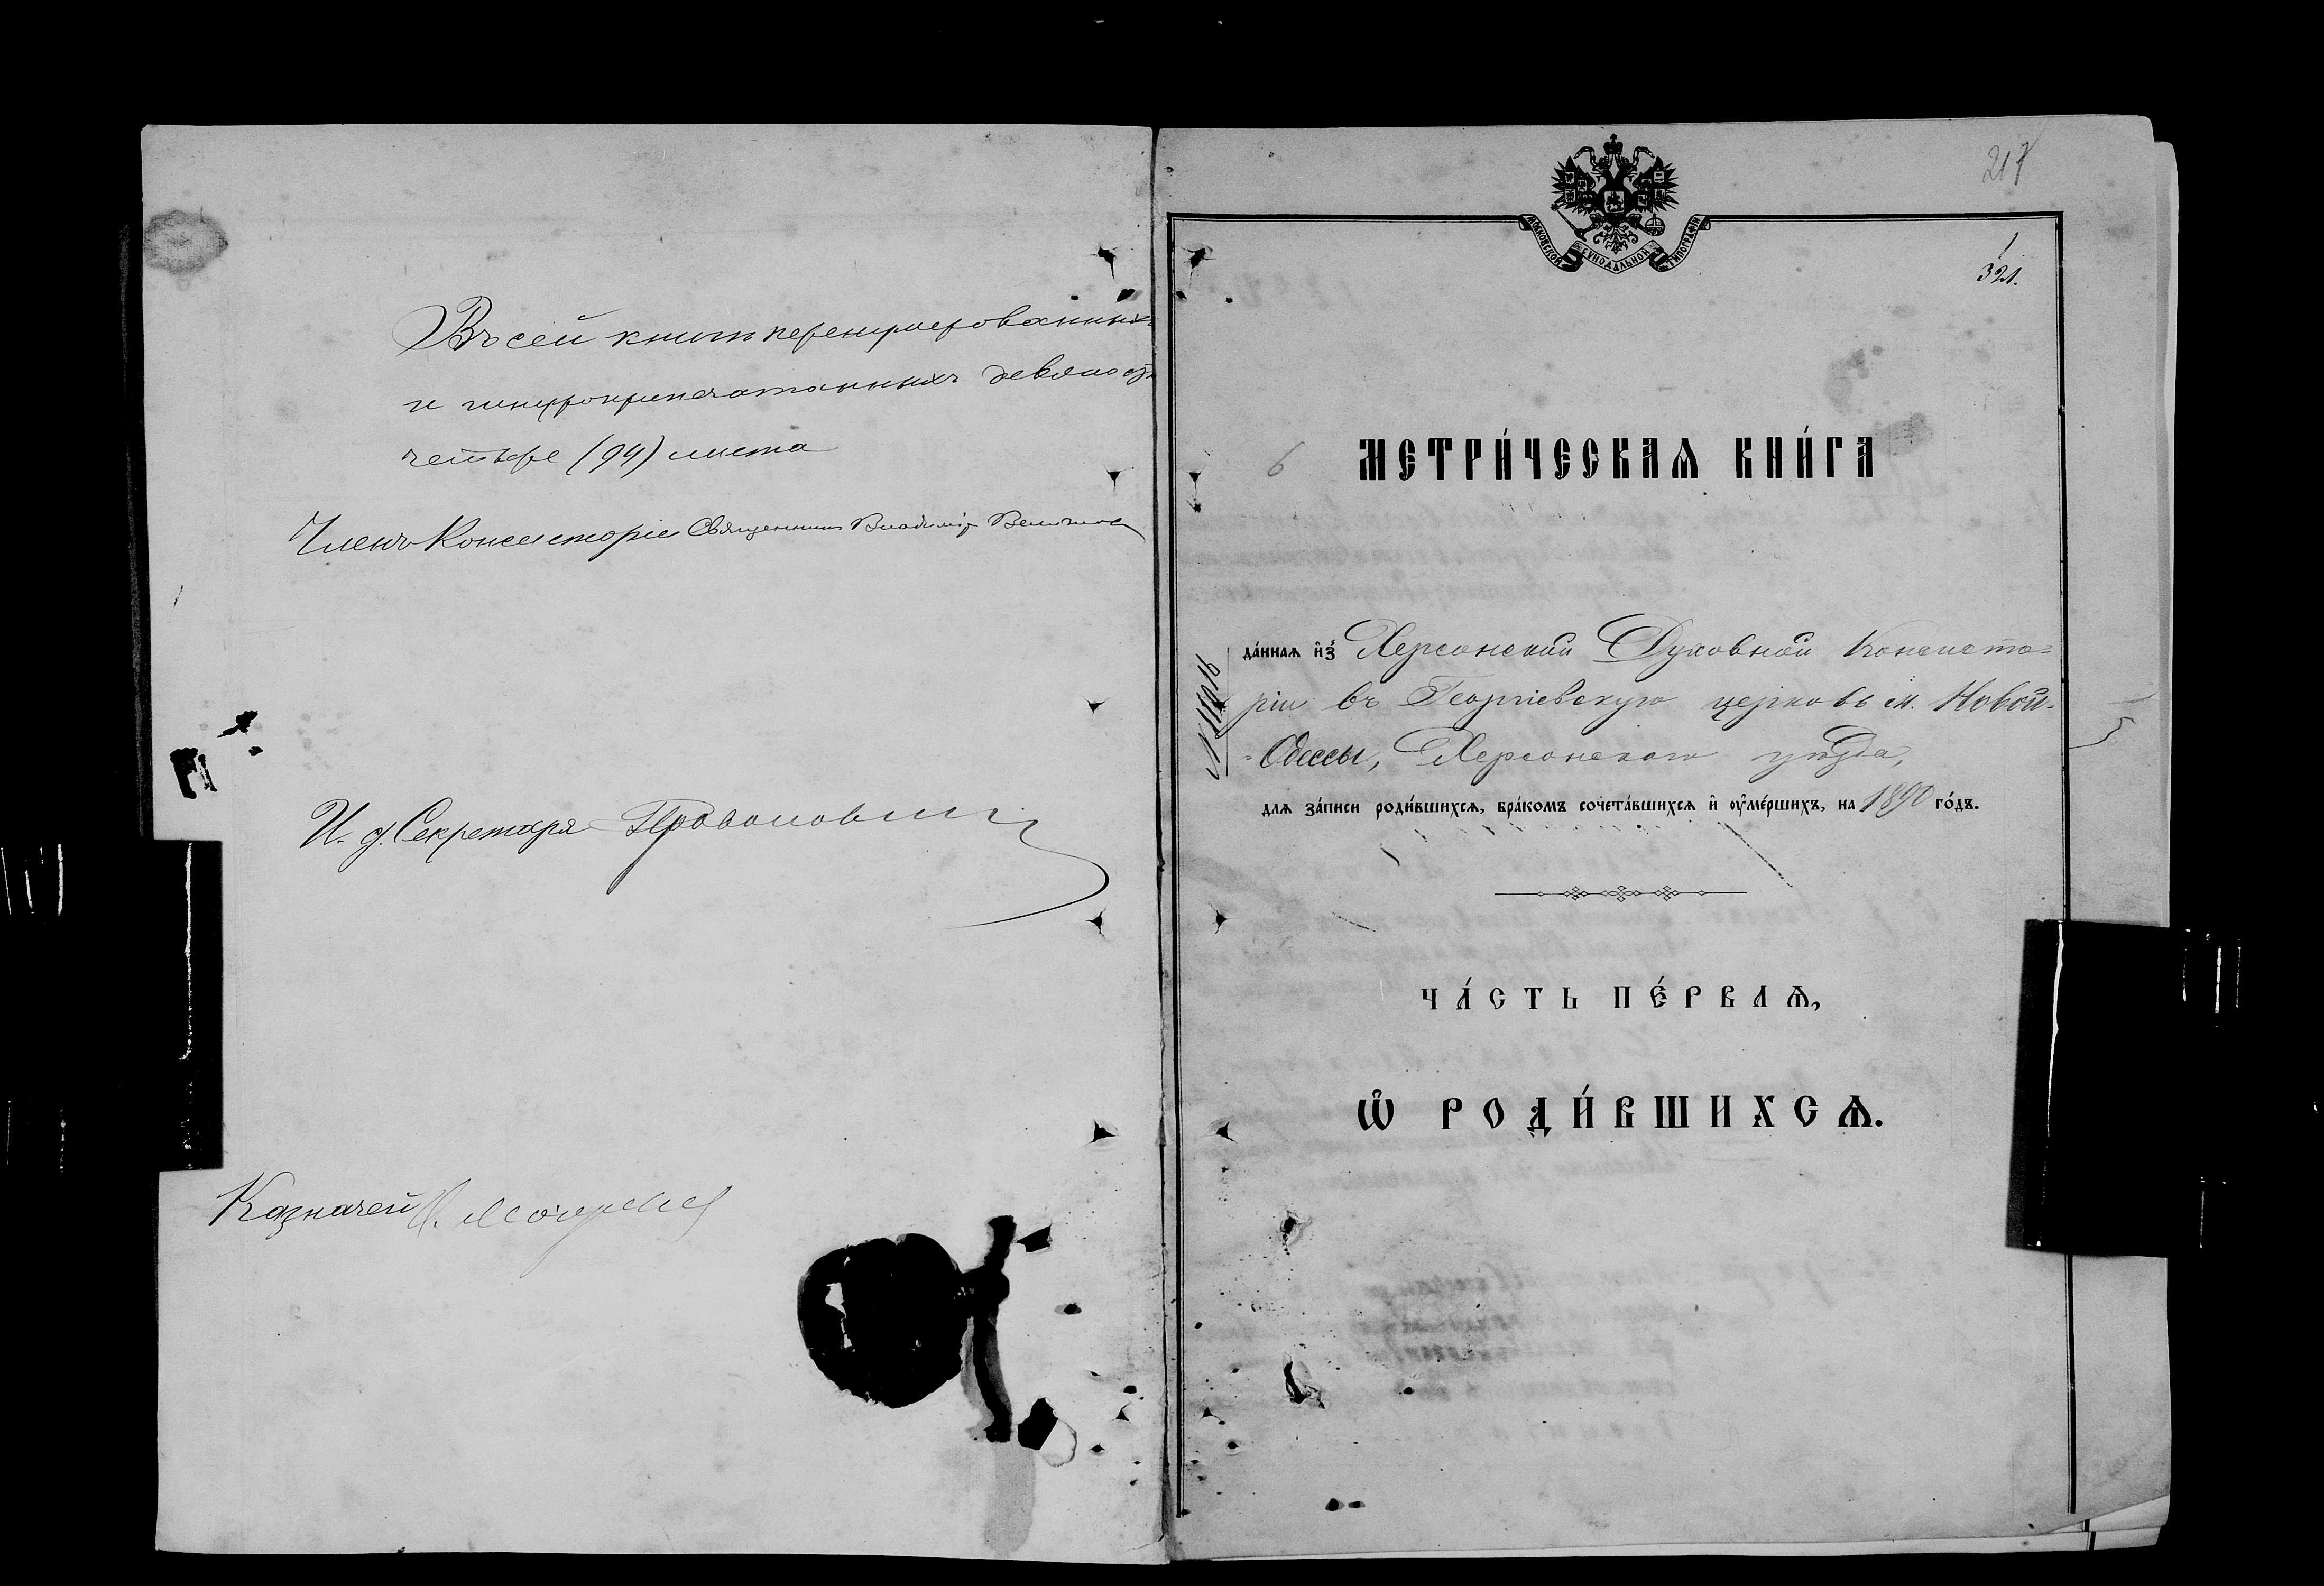 Въ сей книгѣ перенумерованныхъ
и шнуропропечатанныхъ девяносто
четыре (94) листа
Членъ Консисторіи Священникъ Владиміръ
И. д. Секретаря
Казначей
217
МОСКОВСКОЙ СѴНОДАЛЬНОЙ ТИПОГРАФІИ
1
32л.
6
МЕТРИ́ЧЕСКАѦ КНИ́ГА
№ 11916
да́ннаѧ и҆з̾ Херсонской Духовной Консисто=
ріи въ Георгіевскую церковь м. Новой-
=Одессы, Херсонскаго уѣзда,
длѧ за́писи роди́вшихсѧ, бра́комъ сочета́вшихсѧ и҆ ᲂу҆ме́ршихъ, на 1890 го́дъ.
ЧА́СТЬ ПЕ́РВАѦ,
Ѽ РОДИ́ВШИХСѦ.